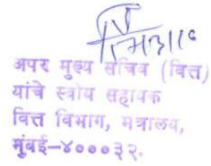 अपर मुख्य सचिव (वित्त)
यांचे स्वीय सहायक
वित्त विभाग, मंत्रालय,
मुंबई-४०००३२.